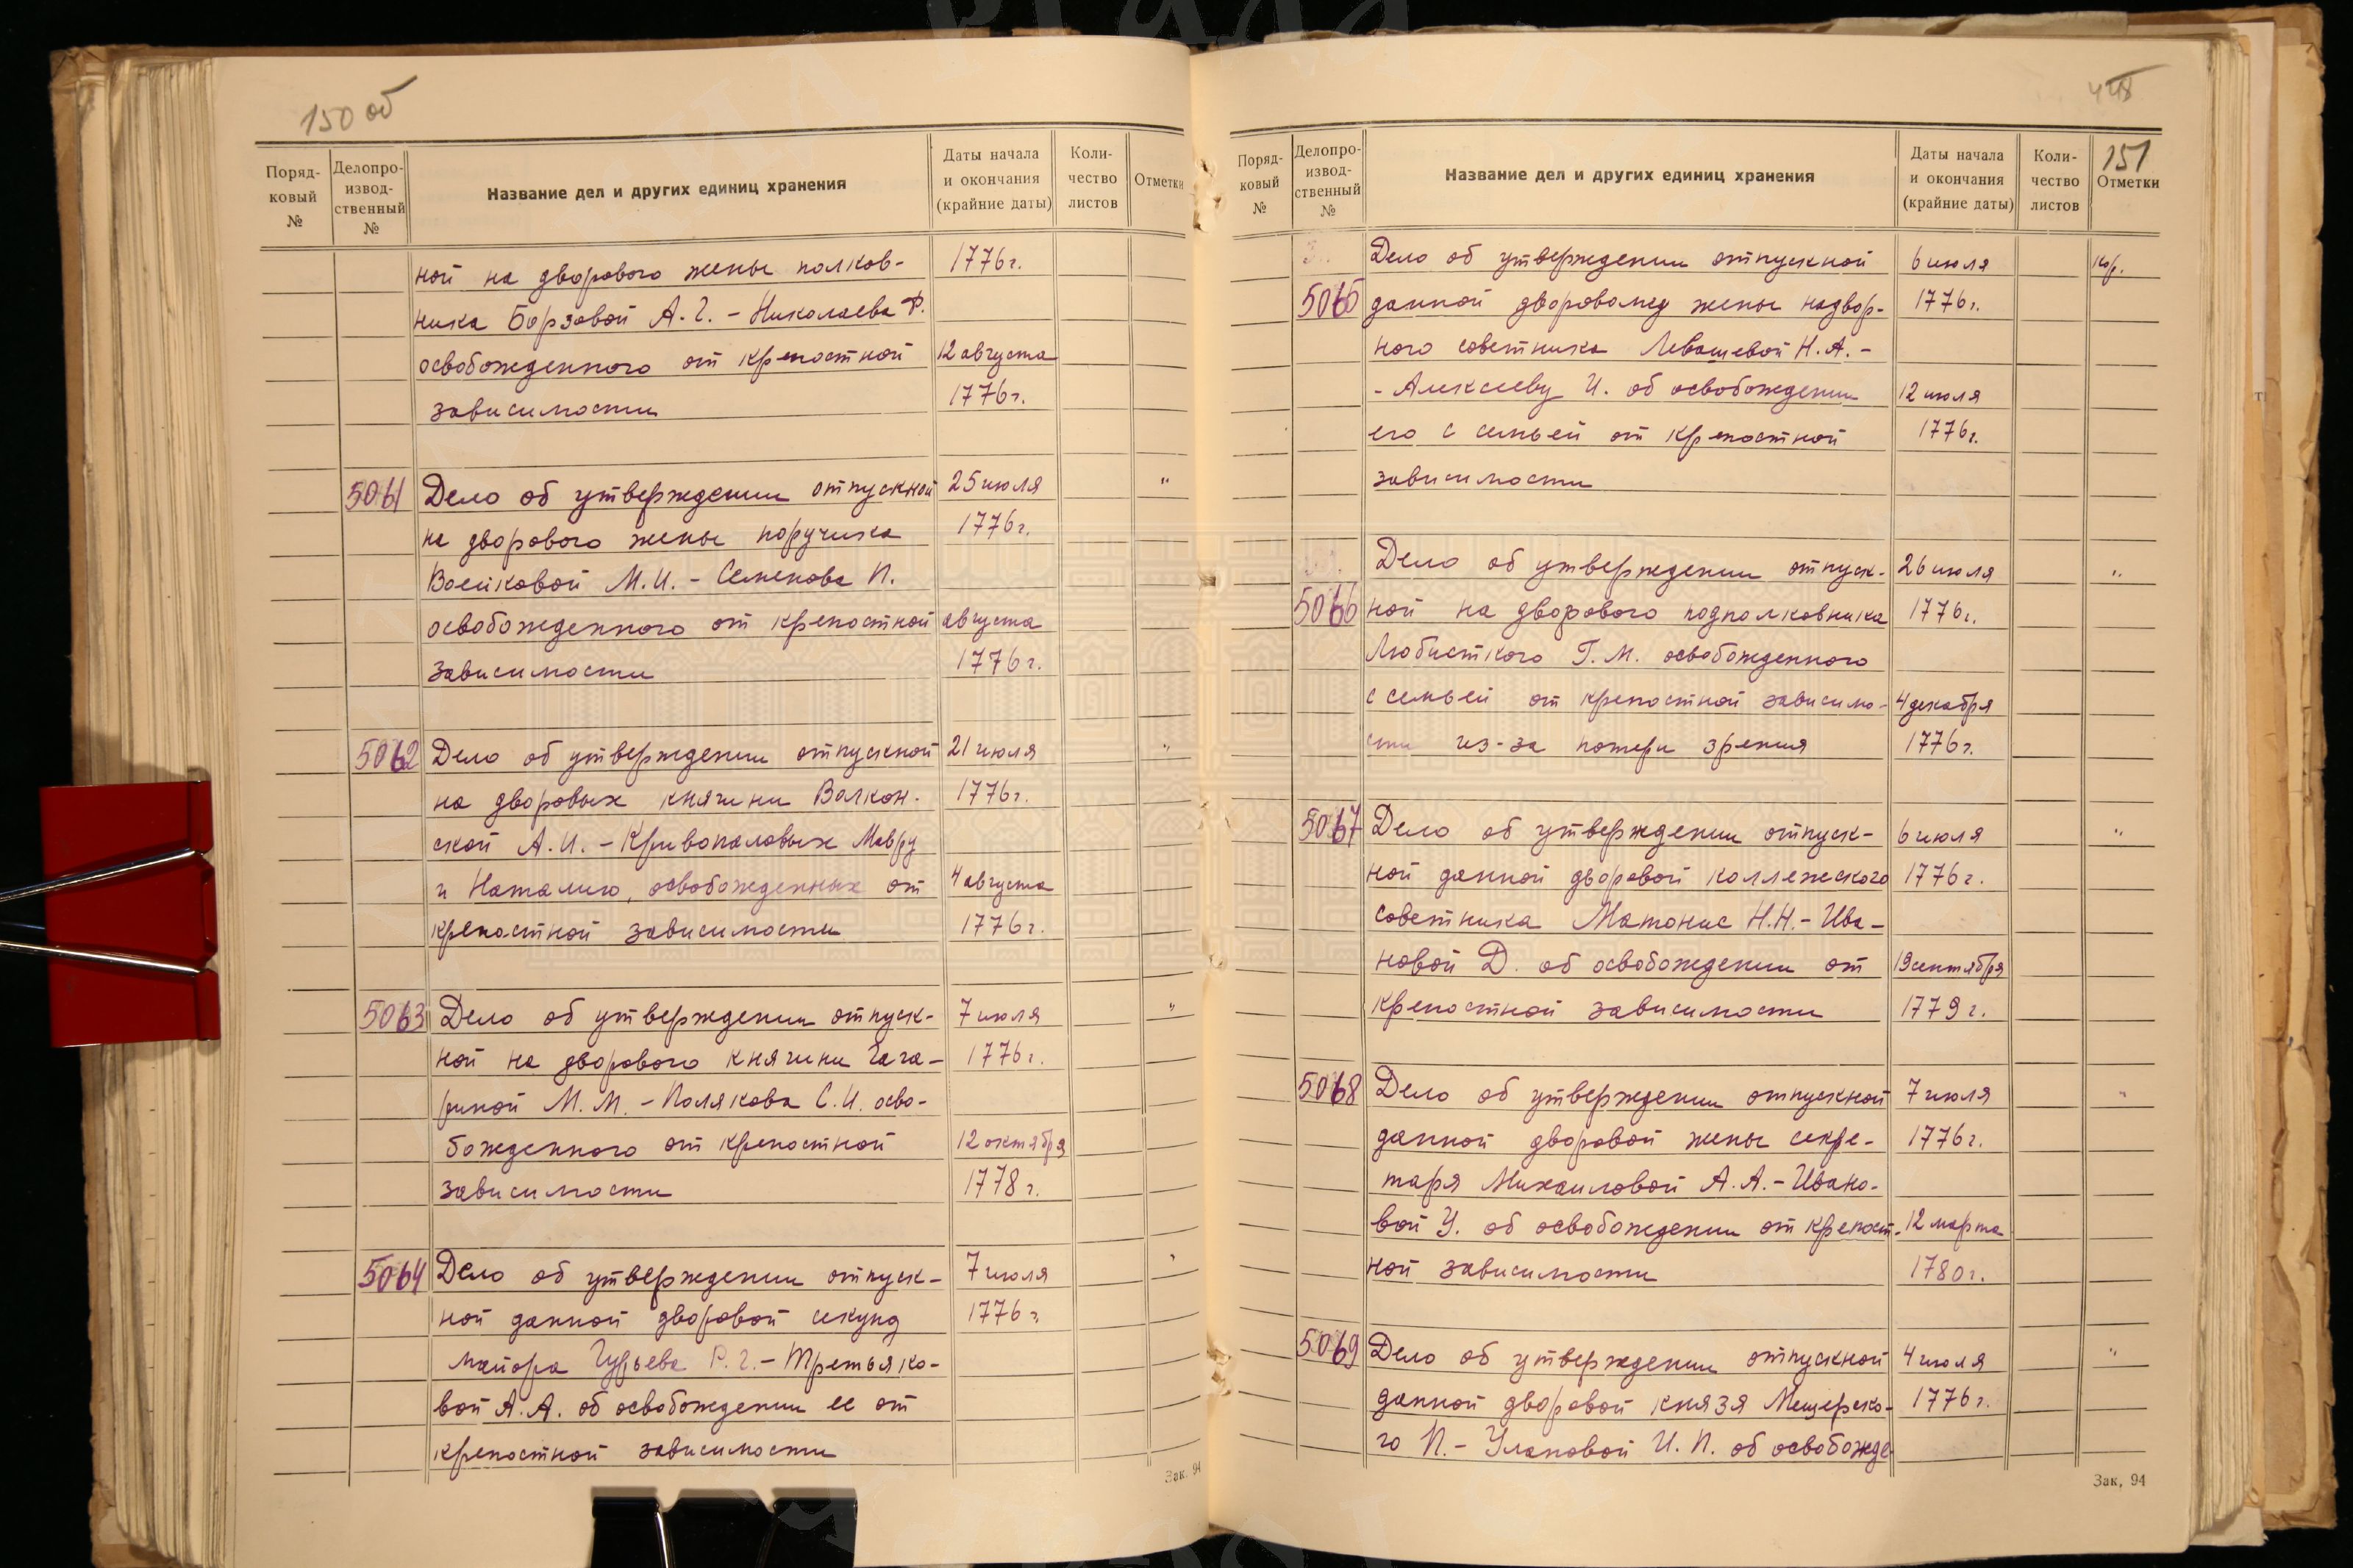 150 об
Поряд-
ковый
№
Делопро-
извод-
ственный
№
Название дел и других единиц хранения
Даты начала
и окончания
(крайние даты)
Коли-
чество
листов
Отметки
ной на дворового жены полков- 1776 г.
ника Борзовой А.Г. - Николаева Ф.
освобожденного от крепостной 12 августа
зависимости 1776 г.
5061 Дело об утверждении отпускной 25 июля "
на дворового жены поручика 1776 г.
Воейковой М.И. - Семенова П.
освобожденного от крепостной августа
зависимости 1776 г.
5062 Дело об утверждении отпускной 21 июля "
на дворовых княгини Волкон- 1776 г.
ской А.И. - Кривопаловых Мавру
и Наталию, освобожденных от 4 августа
крепостной зависимости 1776 г.
5063 Дело об утверждении отпуск- 7 июля "
ной на дворового княгини Гага- 1776 г.
риной М.М. - Полякова С.И. осво-
божденного от крепостной 12 октября
зависимости 1778 г.
5064 Дело об утверждении отпуск- 7 июля "
ной данной дворовой секунд 1776 г.
майора Гурьева Р.Г. - Третьяко-
вой А.А. об освобождении ее от
крепостной зависимости
Зак. 94
151
Поряд-
ковый
№
Делопро-
извод-
ственный
№
Название дел и других единиц хранения
Даты начала
и окончания
(крайние даты)
Коли-
чество
листов
Отметки
Дело об утверждении отпускной 6 июля кор.
5065 данной дворовому жены надвор- 1776 г.
ного советника Левашевой Н.А. -
- Алексееву И. об освобождении 12 июля
его с семьей от крепостной 1776 г.
зависимости
Дело об утверждении отпуск- 26 июля "
5066 ной на дворового подполковника 1776 г.
Любисткого Г.М. освобожденного
с семьей от крепостной зависимо- 4 декабря
сти из-за потери зрения 1776 г.
5067 Дело об утверждении отпуск- 6 июля "
ной данной дворовой коллежского 1776 г.
советника Матонис Н.Н. - Ива-
новой Д. об освобождении от 19 сентября
крепостной зависимости 1779 г.
5068 Дело об утверждении отпускной 7 июля "
данной дворовой жены секре- 1776 г.
таря Михаиловой А.А. - Ивано-
вой У. об освобождении от крепост- 12 марта
ной зависимости 1780 г.
5069 Дело об утверждении отпускной 4 июля "
данной дворовой князя Мещерско- 1776 г.
го П. - Улановой И.П. об освобожде-
Зак. 94